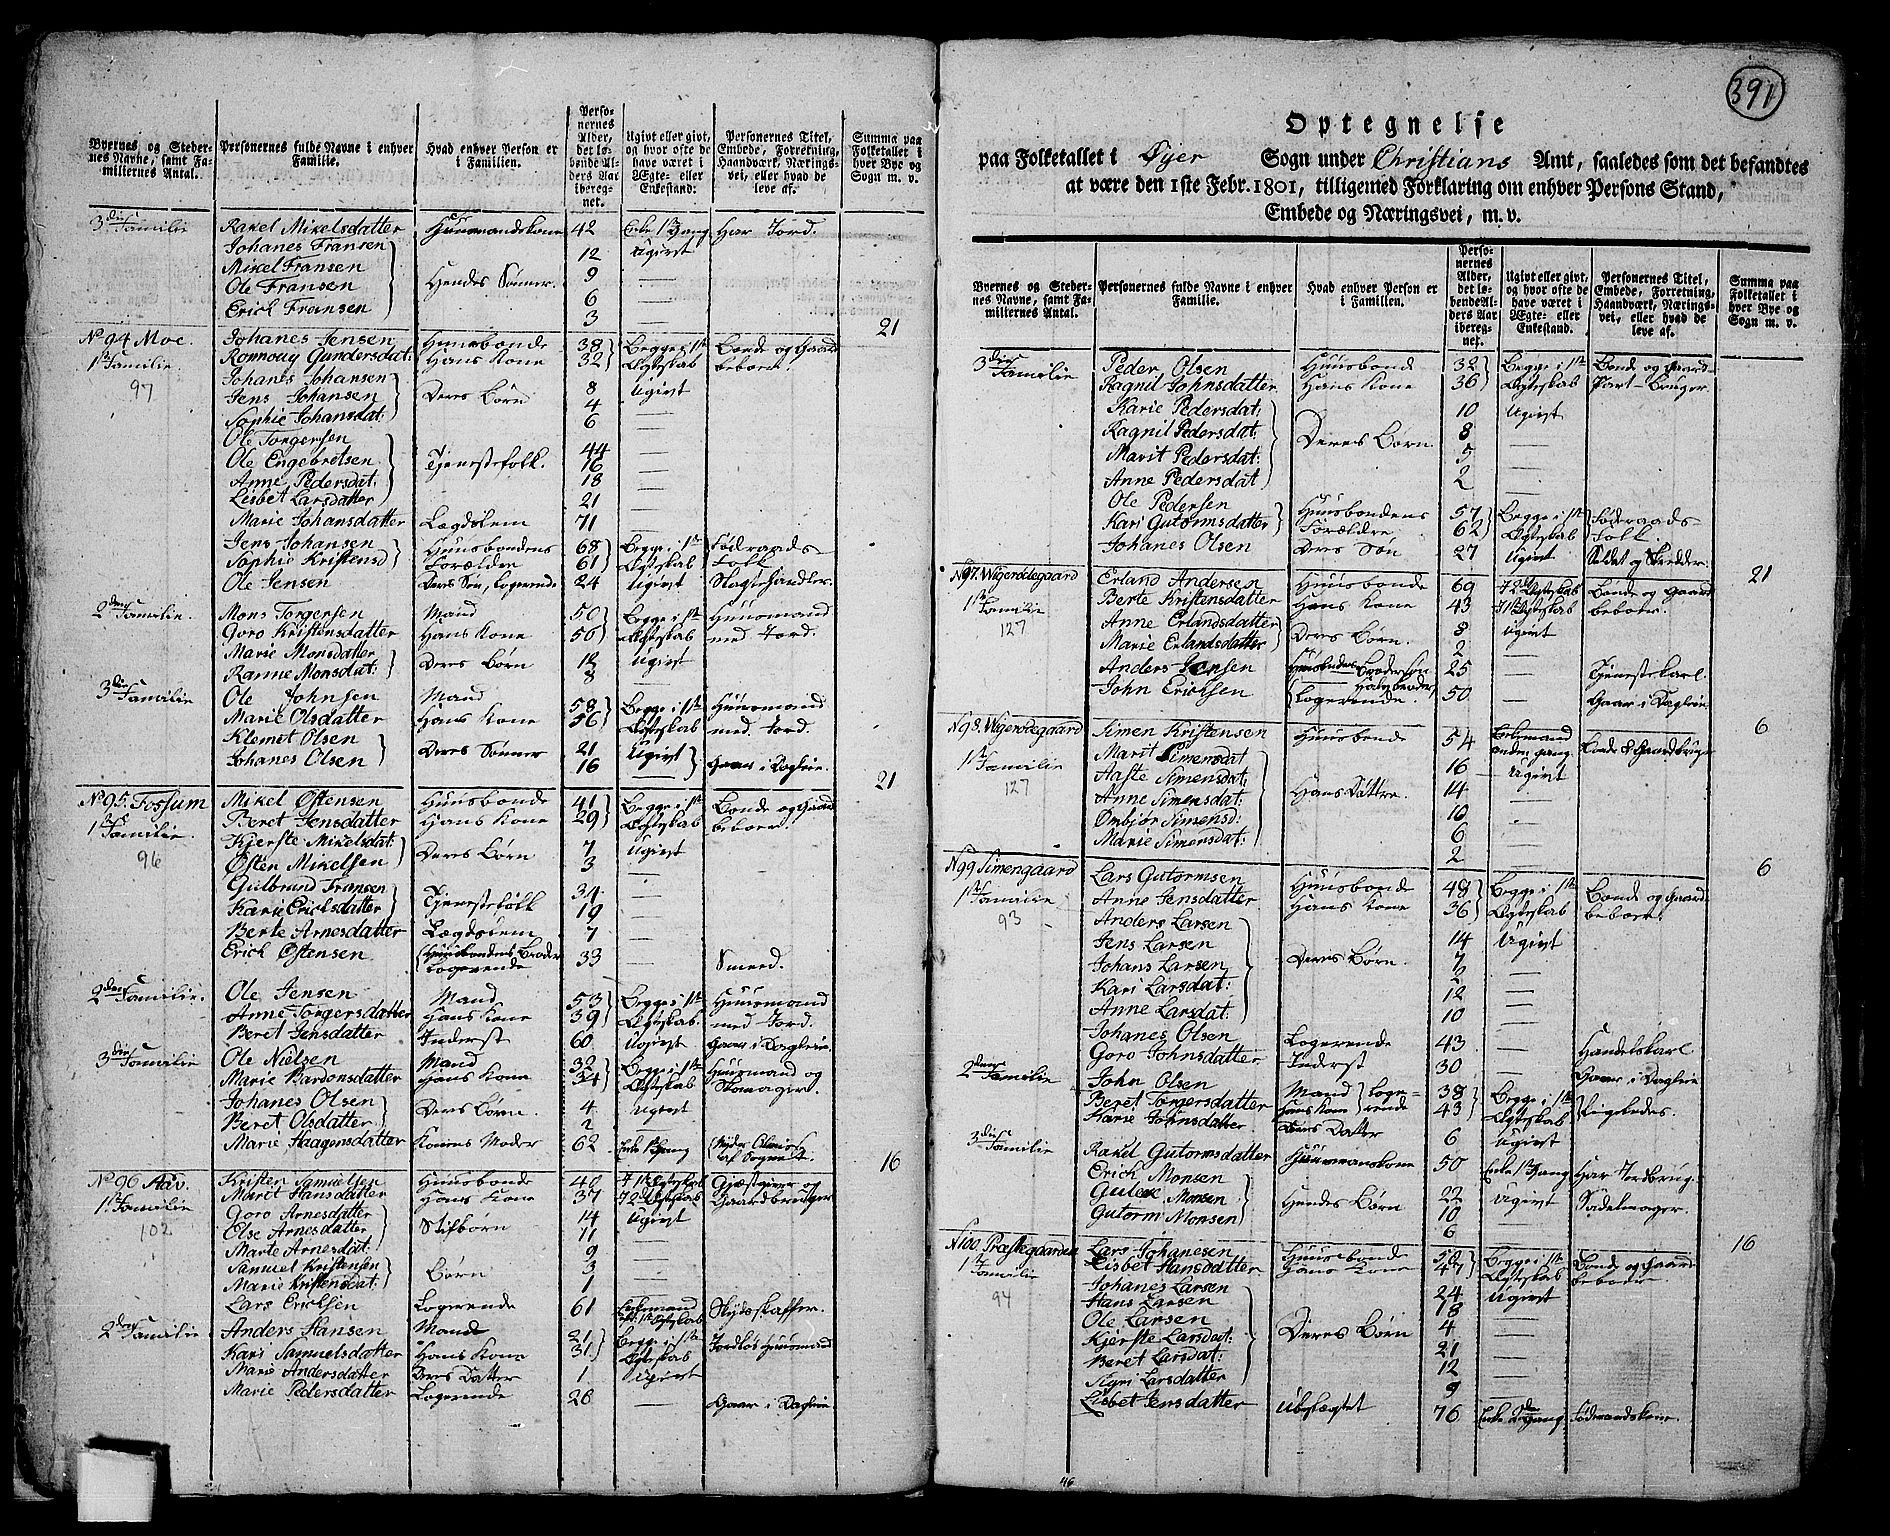 Byernes og Steder- Personernes fulde Navne i enhver Hvad enhver Person er Perso- Ugivt eller givt, Personernes Titel, Summa paa
nes Navne, samt Fa- Familie. i Familien. nernes og hvor ofte de Embede, Forretning, Folketallet i
milliernes Antal. Alder, det lø- have været i Haandværk, Nærings- hver Bye og
bende Al- Ægte- eller vei, eller hvad de Sogn m. v.
ders Aar iberegnet. Enkestand. leve af.
3die Familie Rakel Mikelsdatter Huusmandskone 42 Enke 1te Gang Har Jord.
Johanes Fransen 12 Ugivt
Mikel Fransen Hendes Sønner 9 —
Ole Fransen 6 —
Erick Fransen 3 —
21
No 94 Moe. Johanes Jensen Huusbonde 38 Begge i 1te Bonde og Gaard
1te Familie Ronnoug Gundersdat: Hans Kone 32 Ægteskab beboer.
97 Johanes Johansen Deres Børn 8 Ugivt
Jens Johansen 4 —
Sophie Johansdat: 6 —
Ole Torgersen Tjenestefolk. 44 —
Ole Engebretsen 16 —
Anne Pedersdat: 18 —
Lisbet Larsdatter 21 —
Marie Johansdatter Lægdslem 71 —
Jens Johansen Huusbondens 68 Begge i 1te Føderaads-
Sophie Kristensd Forældre 61 Ægteskab folk
Ole Jensen Deres Søn, Logerende 24 Ugivt Slagtehandler.
2den Familie. Mons Torgersen Mand 50 Begge i 1te Huusmand
Goro Kristensdatter Hans Kone 56 Ægteskab med Jord.
Marie Monsdatter Deres Børn 12 Ugivt
Ranne Monsdat: 8 —
3die Familie Ole Johnsen Mand 58 Begge i 1te Huusmand
Marie Olsdatter Hans Kone 56 Ægteskab med Jord.
Klemet Olsen Deres Sønner 21 Ugivt
Johanes Olsen 16 Gaar i Dagleie.
21
No 95. Fossum Mikel Østensen Huusbonde 41 Begge i 1te Bonde og Gaard
1te Familie. Beret Jensdatter Hans Kone 29 Ægteskab beboer.
96 Kjerste Mikelsdat: Deres Børn 7 Ugivt
Østen Mikelsen 3 —
Gulbrand Fransen Tjenestefolk 34 —
Karie Ericksdatter 19 —
Berte Arnesdatter Lægdslem 7 —
Erick Østensen Huusbondens Broder Logerende 33 — Smeed.
2den Familie. Ole Jensen Mand 53 Begge i 1te Huusmand
Anne Torgersdatter Hans Kone 39 Ægteskab. med Jord.
Beret Jensdatter Inderst 60 Ugivt Gaar i Dagleie
3die Familie Ole Nielsen Mand 32 Begge i 1te Huusmand og
Marie Bardonsdatter Hans Kone 34 Ægteskab Skomager.
Johanes Olsen Deres Børn. 4 Ugivt
Beret Olsdatter 2 —
Marie Haagensdatter Konens Moder 62 Enke Gang Nyder Almisse af Sognet.
16
No 96 Aav. Kristen Samuelsen Huusbonde 40 1te Ægteskab Gjæstgiver og
1te Familie Marit Hansdatter Hans Kone 37 2det Ægteskab Gaardbruger
102 Goro Arnesdatter Stifbørn 14 Ugivt
Olse Arnesdatter 11 —
Marte Arnesdat: 9 —
Samuel Kristensen Børn 3 —
Marie Kristensdat: 1 —
Lars Ericksen Logerende 61 Enkemand 1te Ægteskab Skydsskaffer.
2den Familie Anders Hansen Mand 21 Begge i 1te Jordløs Huusmand
Kari Samuelsdatter Hans Kone 31 Ægteskab
Marie Andersdatter Deres Datter 1 Ugivt
Marie Pedersdatter Logerende 26 — Gaar i Dagleie
391
Optegnelse
paa Folketallet i Øyer Sogn under Christians Amt, saaledes som det befandtes
at være den 1ste Febr. 1801, tilligemed Forklaring om enhver Persons Stand,
Embede og Næringsvei, m. v.
Byernes og Steder- Personernes fulde Navne i enhver Hvad enhver Person er Perso- Ugivt eller givt, Personernes Titel, Summa paa
nes Navne, samt Fa- Familie. i Familien. nernes og hvor ofte de Embede, Forretning, Folketallet i
milliernes Antal. Alder, det lø- have været i Haandværk, Nærings- hver Bye og
bende Al- Ægte- eller vei, eller hvad de Sogn m. v.
ders Aar iberegnet. Enkestand. leve af.
3die Familie Peder Olsen Huusbond 32 Begge i 1te Bonde og Gaard-
Ragnil Johnsdatter Hans Kone 36 Ægteskab Part Bruger.
Karie Pedersdat: Deres Børn. 10 Ugivt
Ragnil Pedersdat: 8 —
Marit Pedersdat: 5 —
Anne Pedersdat 2 —
Ole Pedersen Huusbondens 57 Begge i 1te Føderaads-
Kari Gutormsdatter Forældre 62 Ægteskab folk.
Johanes Olsen Deres Søn 27 Ugivt Soldat og Skredder
21
N 97. Wigerødegaard Erland Andersen Huusbonde 69 2det Ægteskab Bonde og Gaard
1te Familie Berte Kristensdatter Hans Kone 43 1te Ægteskab beboer.
127 Anne Erlandsdatter Deres Børn. 8 Ugivt
Marie Erlandsdatter 2 —
Anders Jensen Huusbondes Brodersøn 25 — Tjenestekarl.
John Ericksen Halvbroder Logerende. 50 — Gaar i Dagleie
6
N 98. Wigerødegaard Simen Kristensen Huusbonde 54 Enkemand anden gang. Bonde & Gaardbruger
1te Familie Marit Simensdat Hans Døttre. 16 Ugivt
127 Aaste Simensdat: 14 —
Anne Simensdat: 10 —
Ombjør Simensd: 6 —
Marie Simensdat: 2 —
6
N 99 Simengaard Lars Gutormsen Huusbonde 48 Begge i 1te Bonde og Gaard
1te Familie Anne Jensdatter Hans Kone 36 Ægteskab beboer.
93 Anders Larsen Deres Børn. 14 Ugivt
Jens Larsen 7 —
Johans Larsen 2 —
Kari Larsdat: 12 —
Anne Larsdat: 10 —
Johanes Olsen Logerende 43 — Handelskarl
Goro Johnsdatter Inderst 30 — Gaar i Dagleie
2den Familie John Olsen Mand Loge- 38 Begge i 1te
Beret Torgersdatter Hans Kone rende 43 Ægteskab
Karie Johnsdatter Deres Datter 6 Ugivt
3die Familie Rakel Gutormsdatter Huusmandskone 50 Enke 1te Gang Har Jordbrug
Erick Monsen Hendes Børn 22 Ugivt Sadelmager.
Gulex Monsen 10 —
Gutorm Monsen 6 —
16
N 100. Præstegaarden Lars Johanesen Huusbonde 50 Begge i 1te Bonde og Gaard
1te Familie Lisbet Hansdatter Hans Kone 47 Ægteskab beboer
94 Johanes Larsen Deres Børn 24 Ugivt
Hans Larsen 18 —
Ole Larsen 4 —
Kjerste Larsdat: 21 —
Beret Larsdat: 12 —
Kari Larsdatter 9 —
Lisbet Jensdatter Ubeslegtet 76 Enke 2den Gang Føderaadskone.
46